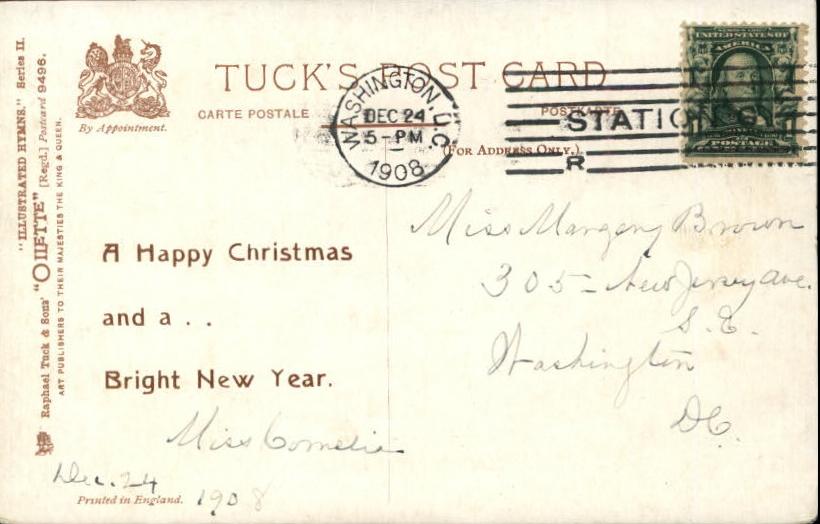 "ILLUSTRATED HYMNS." Series II.
Raphael Tuck & Sons' "OILETTE" [Regd.] Postcard 9496.
ART PUBLISHERS TO THEIR MAJESTIES THE KING & QUEEN.
By Appointment.
TUCK'S POST CARD
CARTE POSTALE
POSTKARTE
(FOR ADDRESS ONLY.)
WASHINGTON, D.C.
DEC 24
5-PM
1908
STATION G
R
UNITED STATES OF
AMERICA
POSTAGE
A Happy Christmas
and a . .
Bright New Year.
Miss Cornelia
Dec. 24
1908
Printed in England.
Miss Margery Brown
305 - New Jersey Ave.
S.E.
Washington
DC.